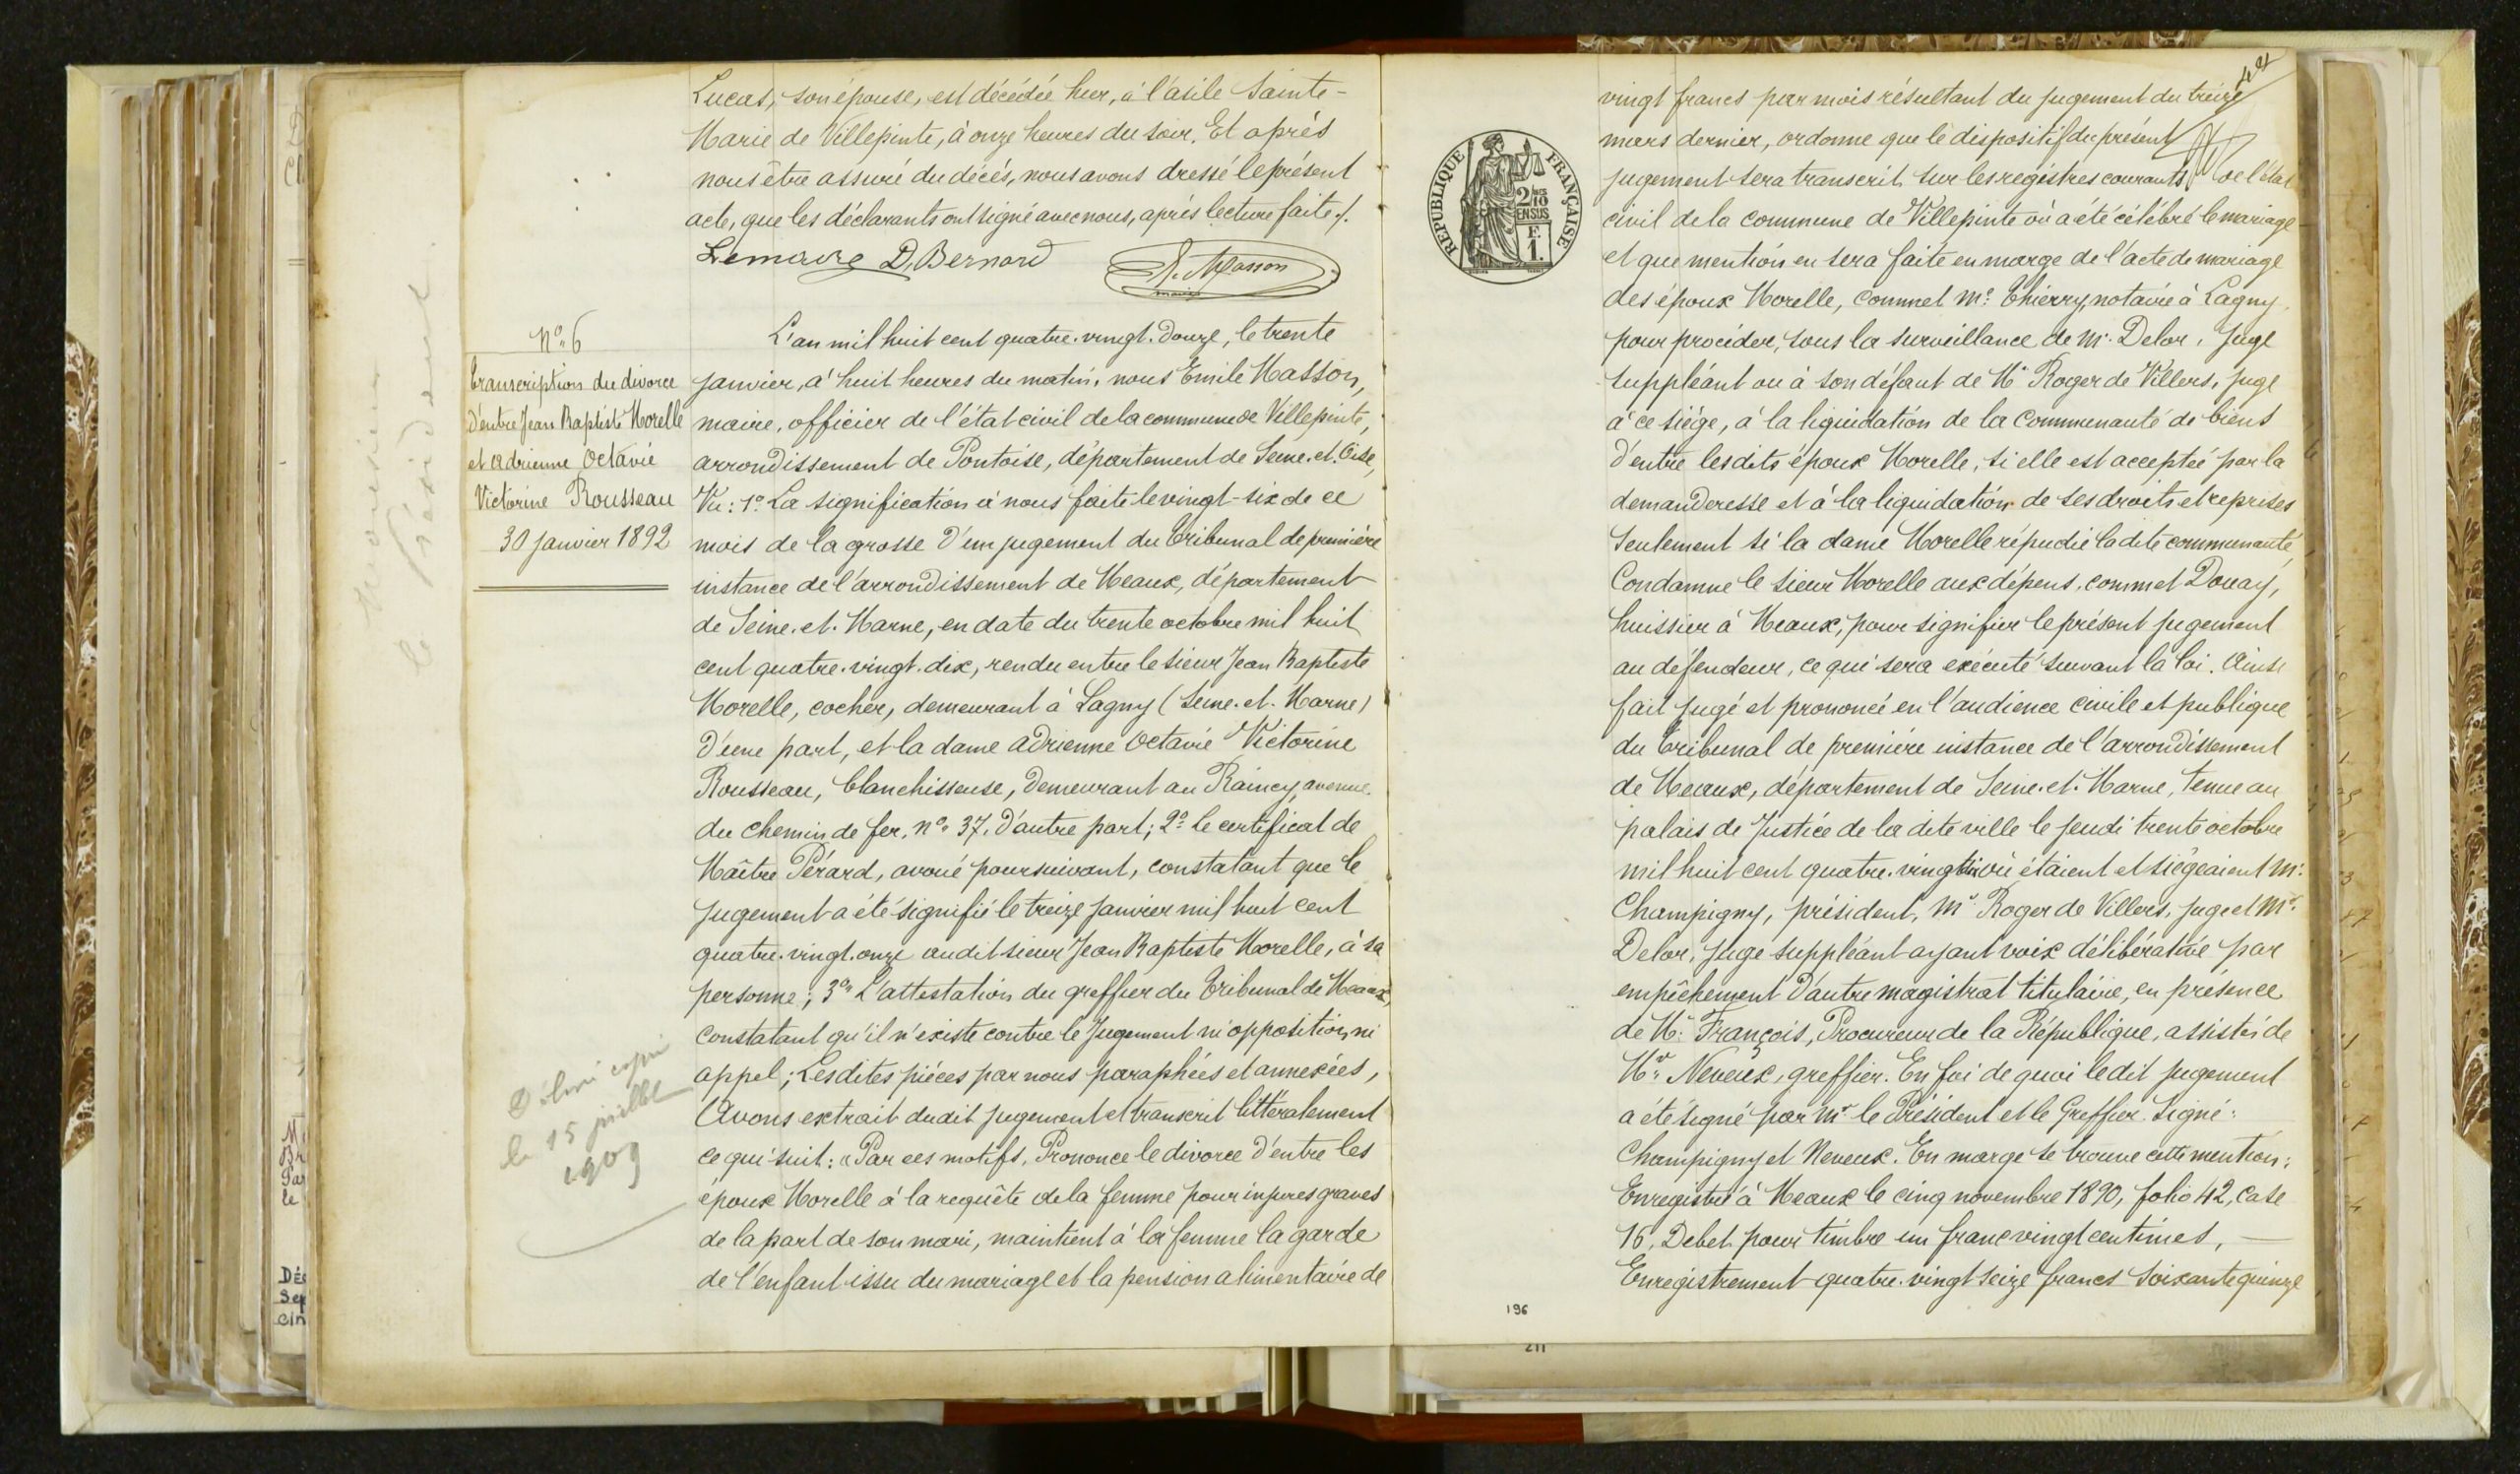 Lucas, son épouse, est décédée hier, à l'asile Sainte-
Marie de Villepinte, à onze heures du soir. Et après
nous être assuré du décès, nous avons dressé le présent
acte, que les déclarants ont signé avec nous, après lecture faite ./.
Lemaire D. Bernard E. Masson
maire
N° 6
Transcription du divorce
d'entre Jean Baptiste Morelle
et Adrienne Octavie
Victorine Rousseau
30 janvier 1892
L'an mil huit cent quatre-vingt-douze, le trente
janvier, à huit heures du matin, nous Emile Masson,
maire, officier de l'état civil de la commune de Villepinte,
arrondissement de Pontoise, département de Seine-et-Oise,
Vu : 1° La signification à nous faite le vingt-six de ce
mois de la grosse d'un jugement du Tribunal de première
instance de l'arrondissement de Meaux, département
de Seine-et-Marne, en date du trente octobre mil huit
cent quatre-vingt-dix, rendu entre le sieur Jean Baptiste
Morelle, cocher, demeurant à Lagny (Seine-et-Marne)
d'une part, et la dame Adrienne Octavie Victorine
Rousseau, blanchisseuse, demeurant au Raincy, avenue
du chemin de fer, n° 37, d'autre part ; 2° le certificat de
Maître Pérard, avoué poursuivant, constatant que le
jugement a été signifié le treize janvier mil huit cent
quatre-vingt-onze audit sieur Jean Baptiste Morelle, à sa
personne ; 3° L'attestation du greffier du Tribunal de Meaux,
constatant qu'il n'existe contre le Jugement ni opposition, ni
appel ; Lesdites pièces par nous paraphées et annexées,
Avons extrait dudit jugement et transcrit littéralement
ce qui suit : « Par ces motifs, Prononce le divorce d'entre les
époux Morelle à la requête de la femme pour injures graves
de la part de son mari, maintient à la femme la garde
de l'enfant issu du mariage et la pension alimentaire de
Délivré copie
le 15 juillet
1909
RÉPUBLIQUE FRANÇAISE
2/10
EN SUS
F.
1.
vingt francs par mois résultant du jugement du treize
mars dernier, ordonne que le dispositif du présent
jugement sera transcrit sur les registres courants de l'état
civil de la commune de Villepinte où a été célébré le mariage
et que mention en sera faite en marge de l'acte de mariage
des époux Morelle, commet Me Thierry, notaire à Lagny
pour procéder, sous la surveillance de Mr Delor, Juge
suppléant ou à son défaut de Mr Roger de Villers, juge
à ce siège, à la liquidation de la Communauté de biens
d'entre lesdits époux Morelle, si elle est acceptée par la
demanderesse et à la liquidation de ses droits et reprises
seulement si la dame Morelle répudie la dite communauté,
Condamne le sieur Morelle aux dépens, commet Douay,
huissier à Meaux, pour signifier le présent jugement
au défendeur, ce qui sera exécuté suivant la loi. Ainsi
fait jugé et prononcé en l'audience civile et publique
du Tribunal de première instance de l'arrondissement
de Meaux, département de Seine-et-Marne, tenue au
palais de Justice de la dite ville le jeudi trente octobre
mil huit cent quatre-vingt-dix où étaient et siégeaient Mr
Champigny, président, Mr Roger de Villers, juge et Mr
Delor, juge suppléant ayant voix délibérative par
empêchement d'autre magistrat titulaire, en présence
de Mr François, Procureur de la République, assistés de
Mr Neveux, greffier. En foi de quoi ledit jugement
a été signé par Mr le Président et le Greffier. Signé :
Champigny et Neveux. En marge se trouve cette mention :
Enregistré à Meaux le cinq novembre 1890, folio 42, case
16, Debet pour timbre un franc vingt centimes, —
Enregistrement quatre-vingt seize francs soixante quinze
196
211